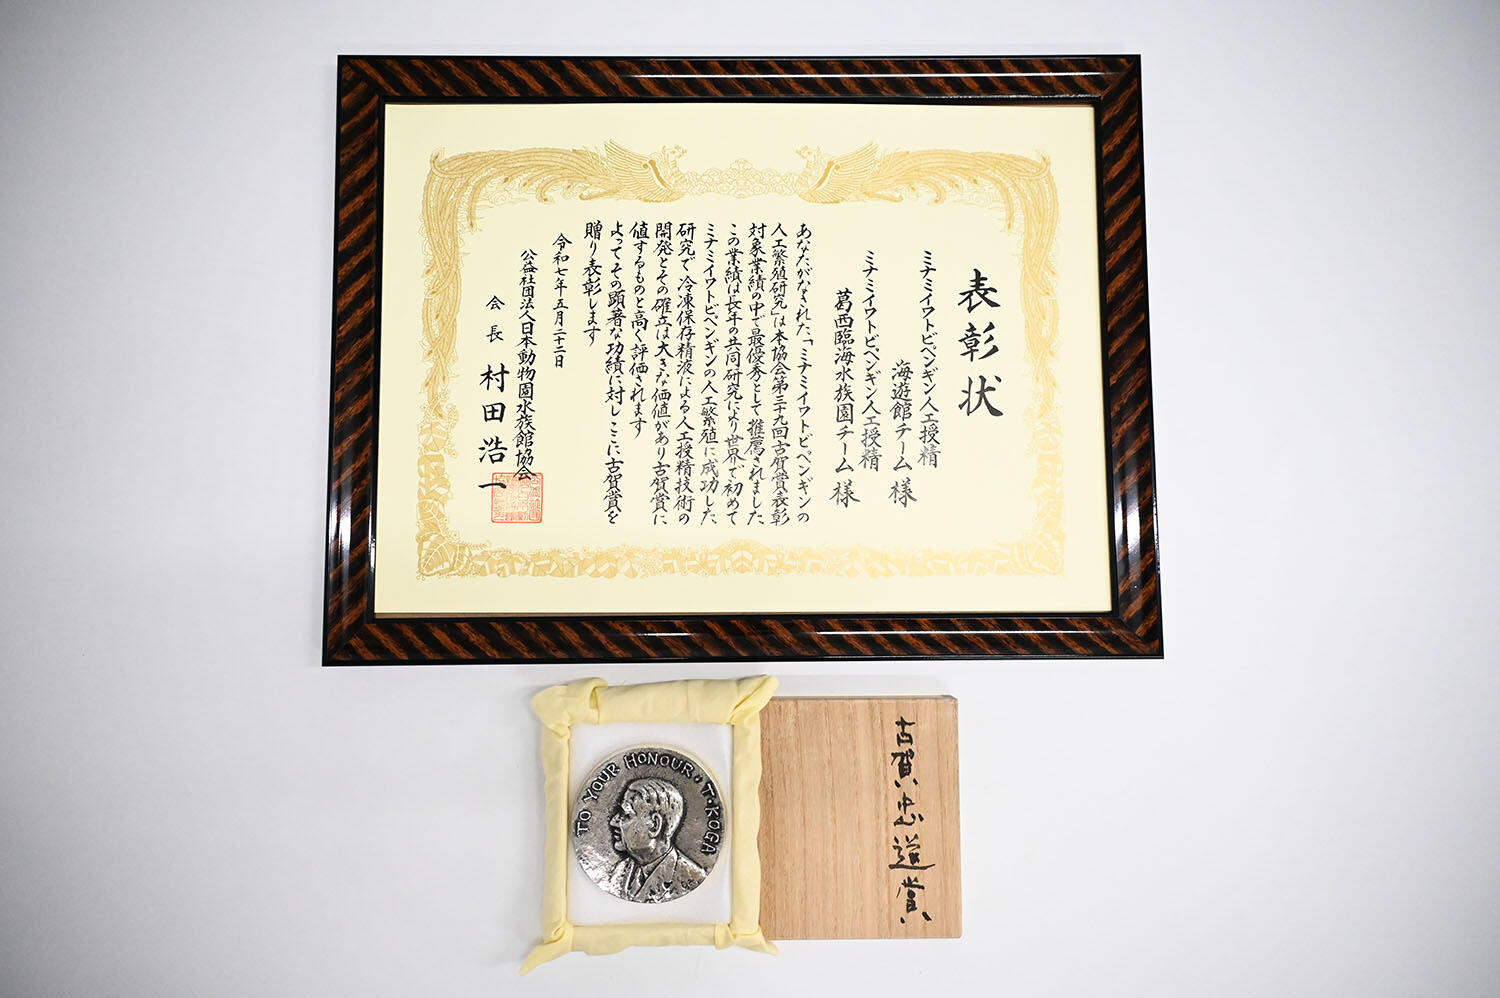 表彰状
ミナミイワトビペンギン人工授精
海遊館チーム 様
ミナミイワトビペンギン人工授精
葛西臨海水族園チーム 様
あなたがなされた「ミナミイワトビペンギンの
人工繁殖研究」は本協会第三十九回古賀賞表彰
対象業績の中で最優秀として推薦されました
この業績は長年の共同研究により世界で初めて
ミナミイワトビペンギンの人工繁殖に成功した
研究で冷凍保存精液による人工授精技術の
開発とその確立は大きな価値があり古賀賞に
値するものと高く評価されます
よってその顕著な功績に対しここに古賀賞を
贈り表彰します
令和七年五月二十二日
公益社団法人日本動物園水族館協会
会長 村田浩一
TO YOUR HONOUR · T · KOGA
古賀忠道賞